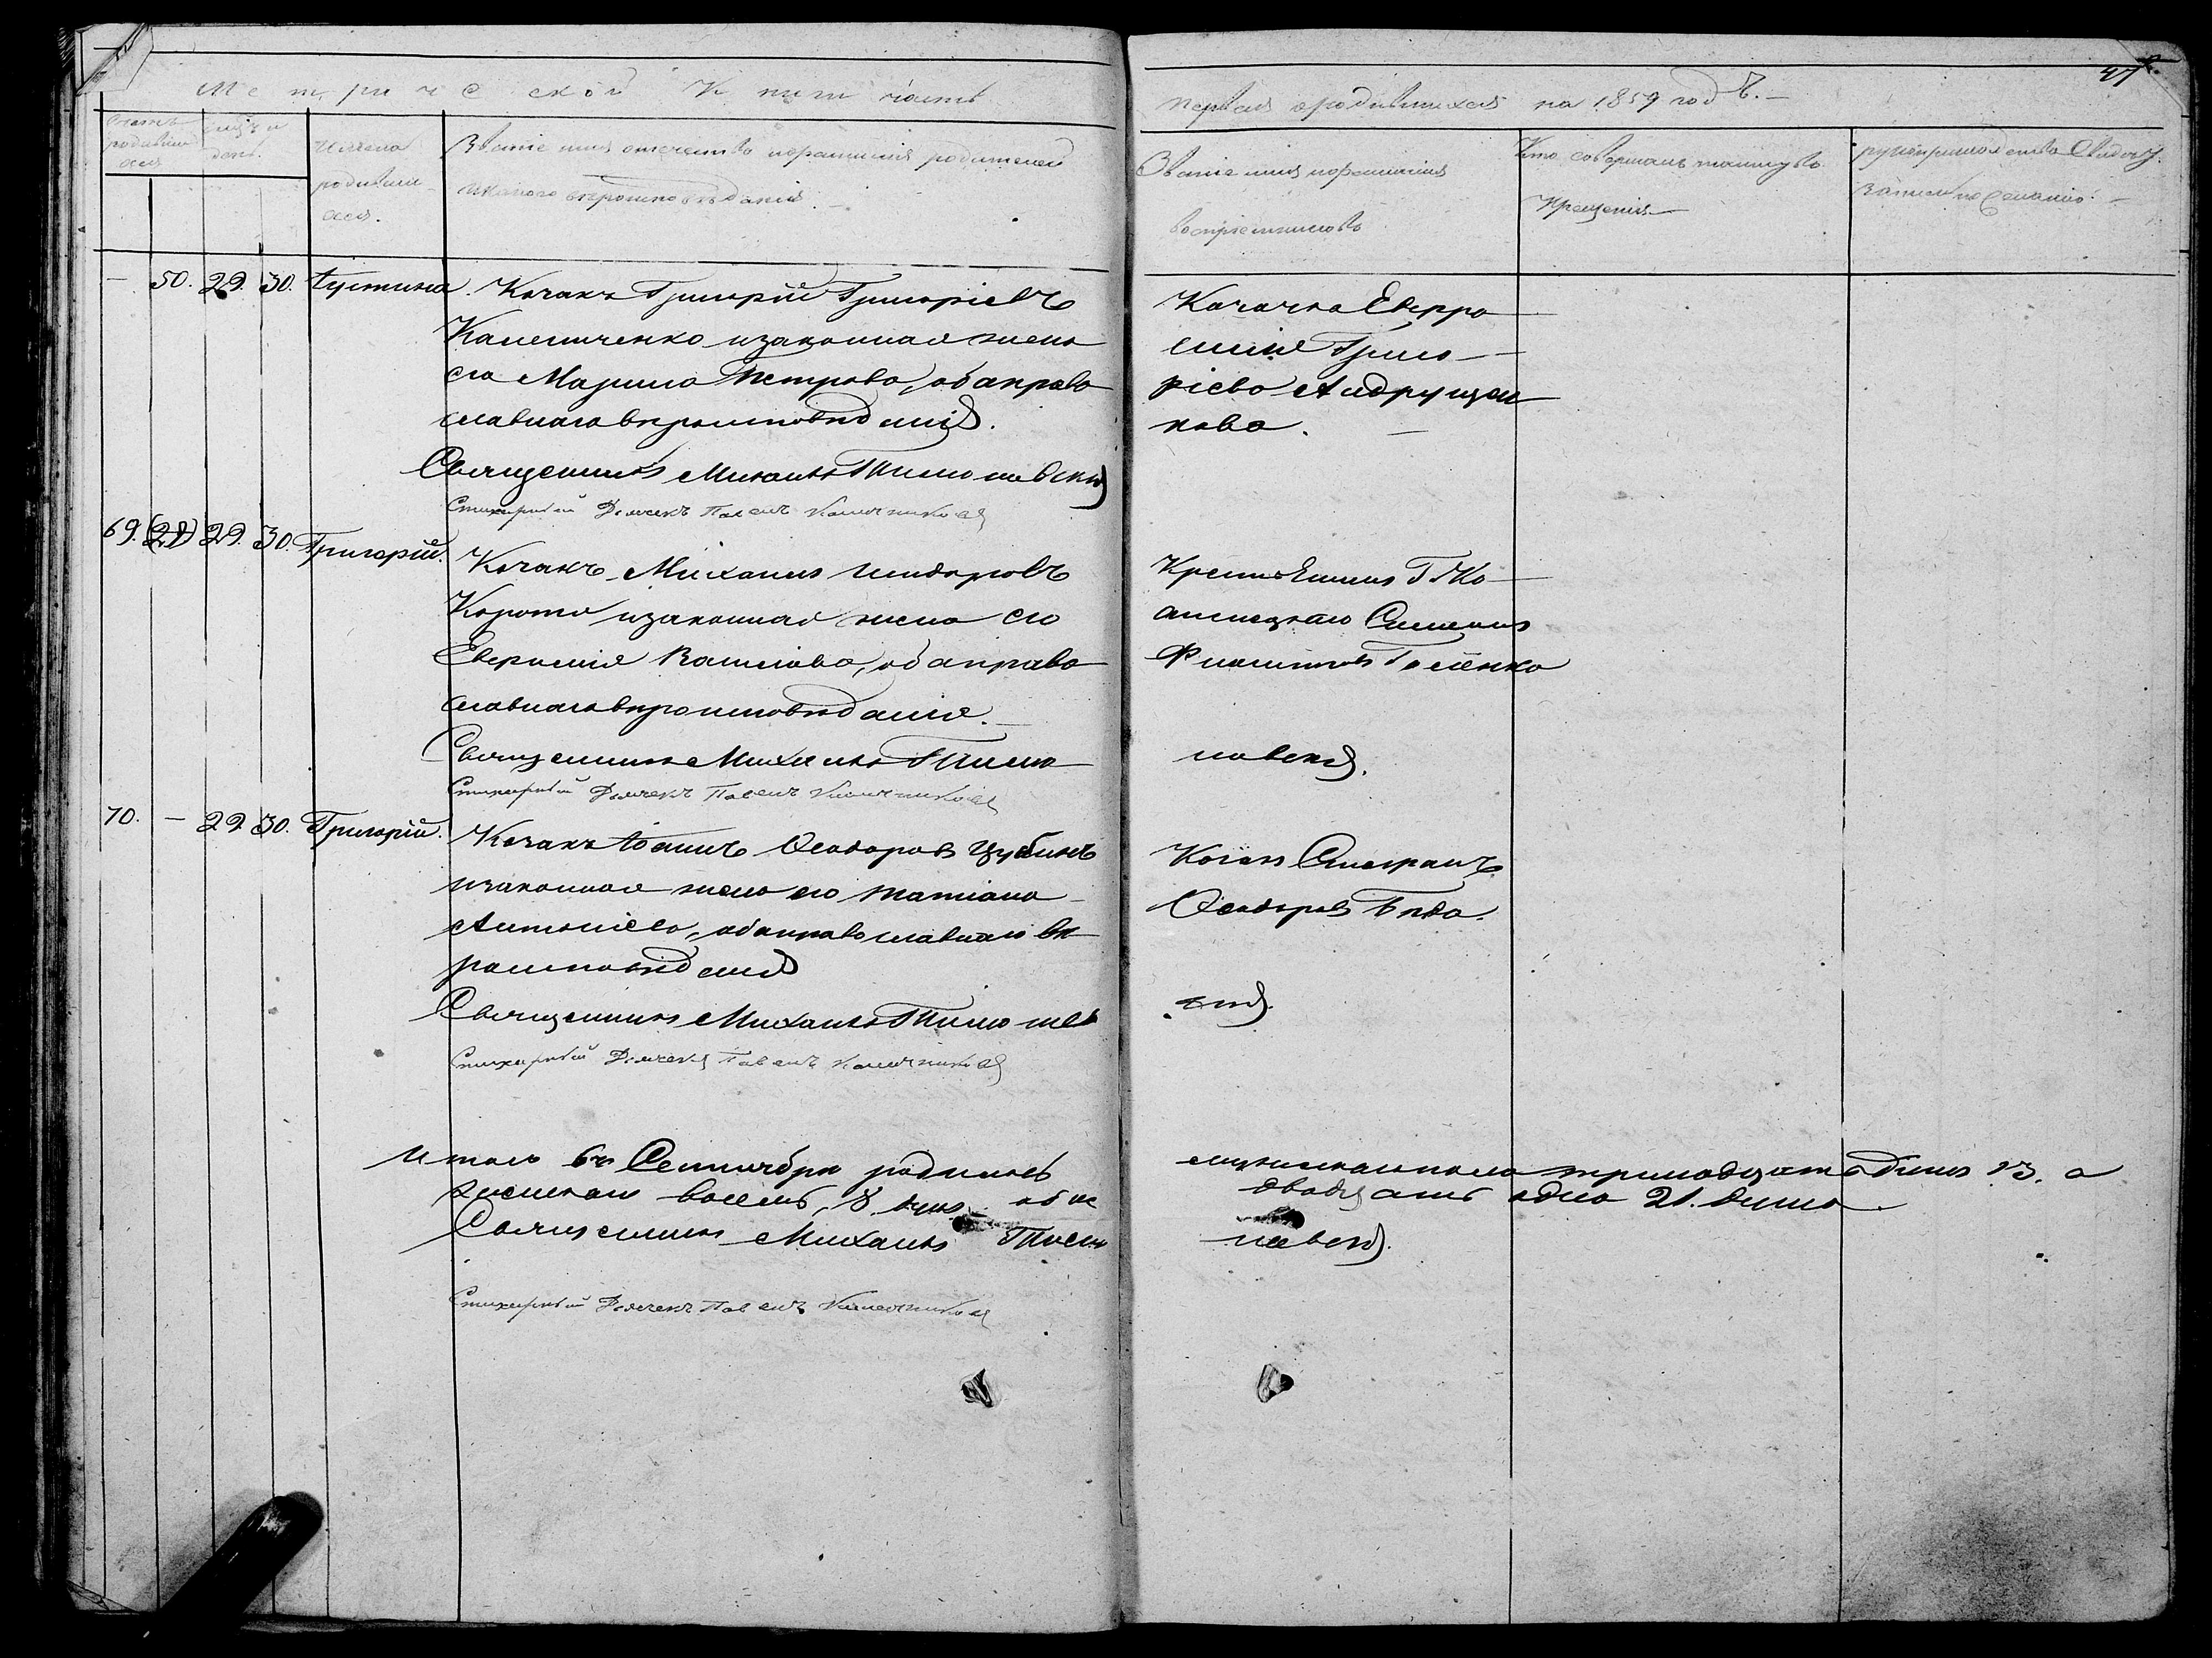 Метрической Книги часть
первая о родившихся на 1859 годъ.
47
Счетъ родившихся
день.
Имена родивших-
ся.
Званіе имя отечество и фамилія родителей
и какого вѣроисповѣданія.
Званіе имя и фамилія
воспріемниковъ
Кто совершалъ таинство
Крещенія
рукоприкладство свидѣт.
записи по желанію
— 50. 29. 30. Іустина.
Козакъ Григорій Григоріевъ
Калениченко и законная жена
его Марина Петрова, оба право
славнаго вѣроисповѣданія.
Священникъ Михаилъ Тимошевскій
Стихарный Дьячекъ Павелъ
Козачка Евфро
синія Григо-
ріева Андрущен
кова.
69. 29. 30. Григорій.
Козакъ Михаилъ Исидоровъ
Коротя и законная жена его
Евфросинія Василіева, оба право
славнаго вѣроисповѣданія.
Священникъ Михаилъ Тимо
шевскій.
Стихарный Дьячекъ Павелъ
Семенъ
Филиповъ
70. — 29. 30. Григорій.
Козакъ Іоаннъ Ѳеодоровъ
и законная жена его Татіана
Антоніева, оба православнаго вѣ
роисповѣданія
Священникъ Михаилъ Тимошев
скій.
Стихарный Дьячекъ Павелъ
Козакъ
Ѳеодоровъ Бѣда.
Итого въ Сентябрѣ родилось
мужескаго пола тринадцать душъ 13. а
женскаго восемь, 8 душъ. обое
двадцать одна 21. душа.
Священникъ Михаилъ Тимо
шевскій.
Стихарный Дьячекъ Павелъ